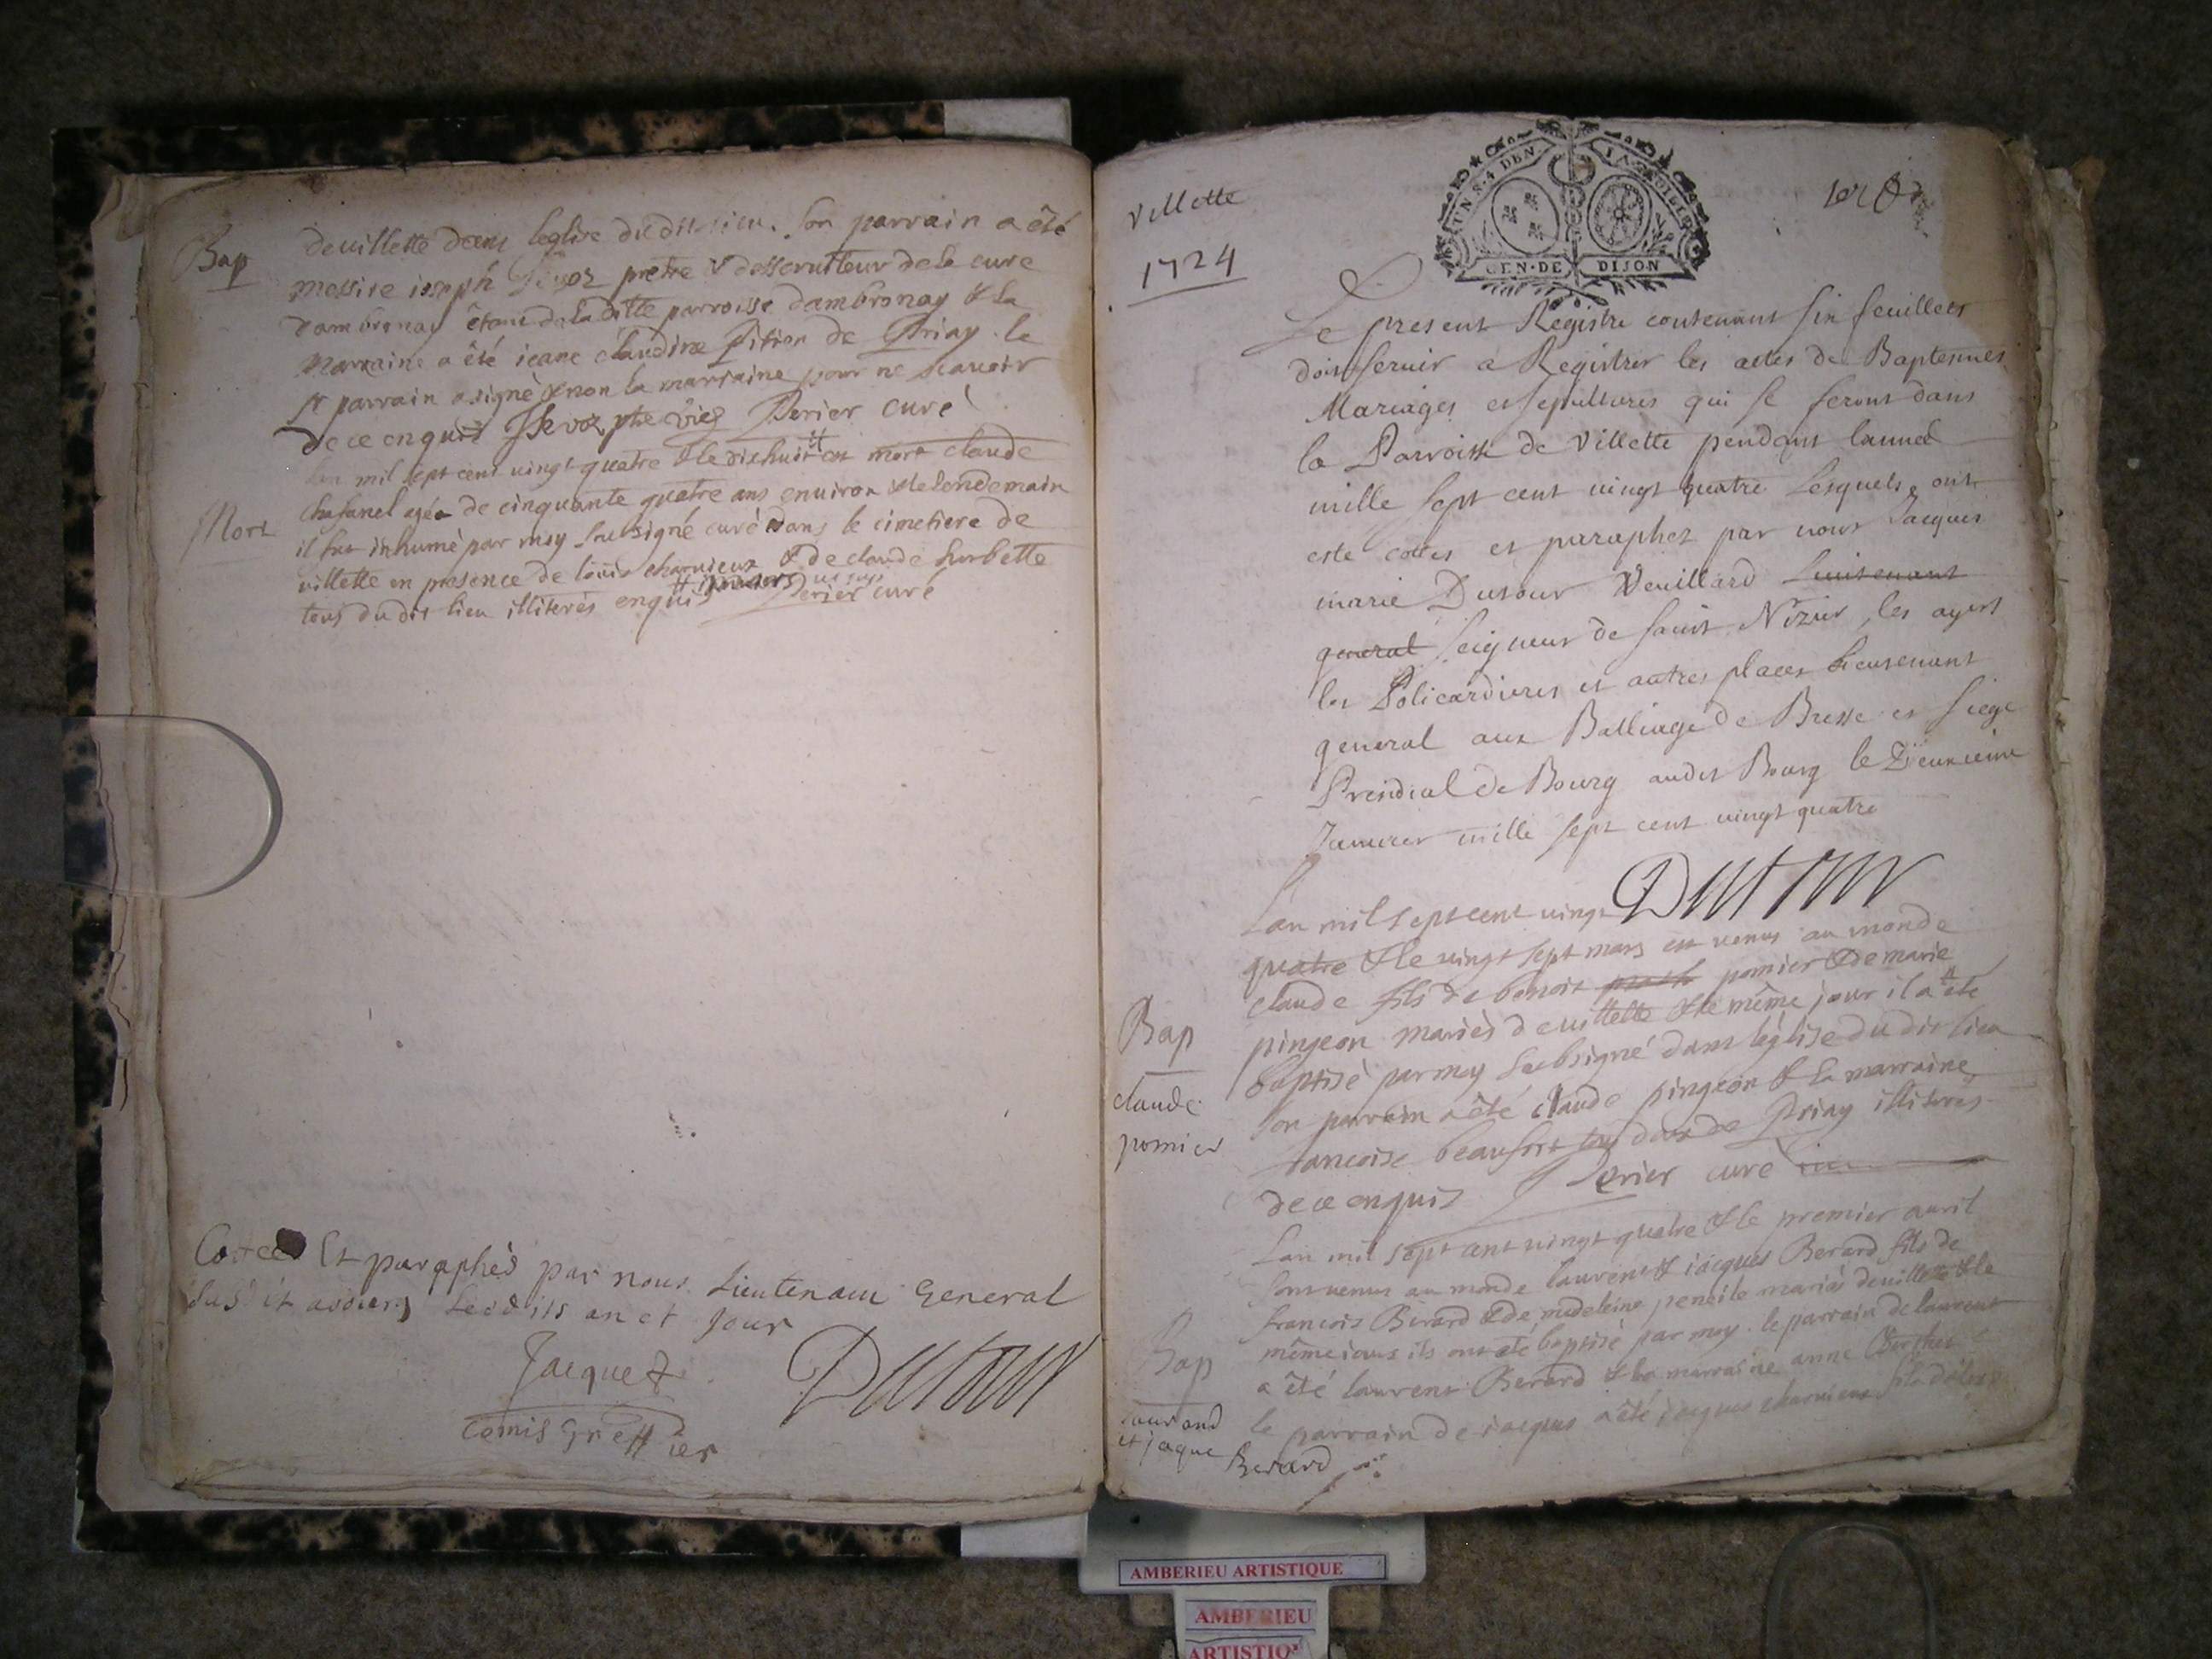 Bap
devillette dans leglise dudit lieu. Son parrain a êté
messire joseph prêtre & desserviteur de la cure
dambronay de laditte parroisse dambronay & la
Marraine a êté jeane claudine de Priay. le
Sr parrain a signè & non la marraine pour ne scavoir
de ce enquis Perier curé
lan mil sept cent vingt quatre & le dixhuit est mort claude
Mort
chafanel agée de cinquante quatre ans environ & le lendemain
il fut inhumè par moy Soubsigné curé dans le cimetiere de
villette en presence de loüis charvieux & de claude hurbette
tous du dit lieu illiterés enquis Perier curé
Cottee Et paraphés par nous Lieutenant General
susdit lesdits an et jour
Jacquet
Dutour
Comis Greffier
Villette
1724
UN.S.4 DEN.
LA FEUILLE
GEN·DE DIJON
1er
Le present Registre contenant six feuillets
doit servir a Registrer les actes de Baptesmes
Mariages et sepultures qui se feront dans
la Parroisse de Villette pendant lanneé
mille sept cent vingt quatre Lesquels ont
este cottes et paraphez par nous Jacques
marie Dutour Veuillard Lieutenant
general seigneur de saint Nizier, les
les Policardieres et autres places Lieutenant
general aux Balliage de Bresse et siege
Presidial de Bourg audit Bourg le Deuxieme
Janvier mille sept cent vingt quatre
Dutour
Lan mil sept cent vingt
quatre & le vingt sept mars est venus au monde
claude fils de benoit pomier & de marie
Bap
pingeon mariés de villette & le même jour il a êté
baptisé par moy Soubsigné dans léglise du dit lieu
claude
pomier
son parrain a êté claude pingeon & la marraine
francoise beaufort tous deux de Priay illiteres
de ce enquis Perier curé
Lan mil sept cent vingt quatre & le premier avril
sont venus au monde laurent & jacques Berard fils de
francois Berard & de madeleine mariés de villette & le
Bap
même jour ils ont eté baptisé par moy. le parrain de laurent
a êté laurent Berard & la marraine anne
laurand
et jaque
Berard
le parrain de jacques a êté jacques charvieux
AMBERIEU ARTISTIQUE
AMBERIEU
ARTISTIQ